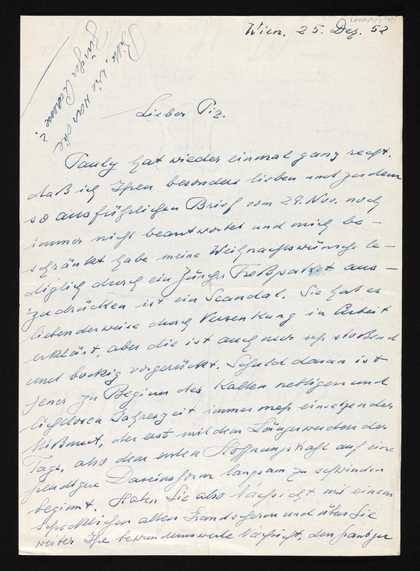 Wien, 25. Dez. 52
Bitte, wie war die
Lieber Piz.
Pauly hat wieder einmal ganz recht.
daß ich Ihren besonders lieben und zudem
so ausführlichen Brief vom 29. Nov. noch
immer nicht beantwortet und mich be-
schränkt habe meine Weihnachtswünsche le-
diglich durch ein Freßpacket aus-
zudrücken ist ein Scandal. Sie hat es
liebenswerterweise durch Versenkung in Arbeit
erklärt, aber die ist auch nur sehr stoßend
und bockig vorgerückt. Schuld daran ist
jener zu Beginn des kalten nebligen und
lichtlosen Jahreszeit immer mehr einsetzender
Mißmut, der erst mit dem Längerwerden der
Tage, also dem ersten Hoffnungsstrahl auf eine
freudigere Daseinsform langsam zu schwinden
beginnt. Haben Sie also Nachsicht mit einem
schrecklichen alten und üben Sie
weiter Ihre bewundernswerte Nachsicht, den